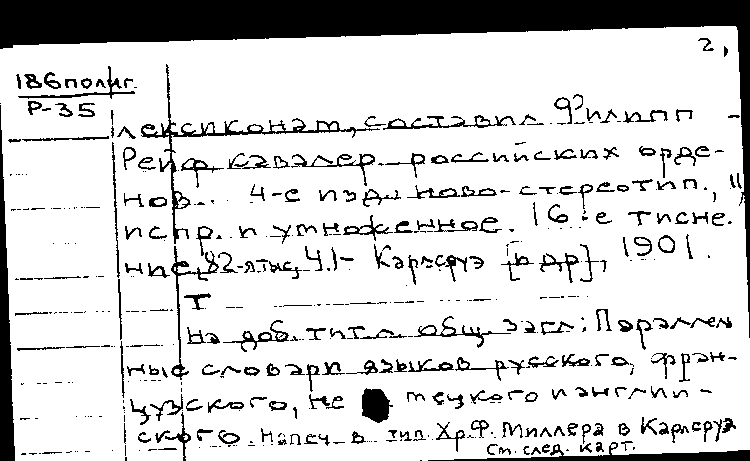 2,
186 полиг.
Р-35
лексиконам, составил Филипп
Рейф, кавалер российских орде-
нов... 4-е изд. ново-стереотип.,
испр. и умноженное. 16-е тисне.
ние, Карлсруэ [и др], 1901.
Т
На доб. тит. л. общ. загл: Параллель
ные словари языков русского, фран-
цузского, не мецкого и англий-
ского. Напеч. в тип. Хр. Ф. Миллера в Карлсруэ
См. след. карт.